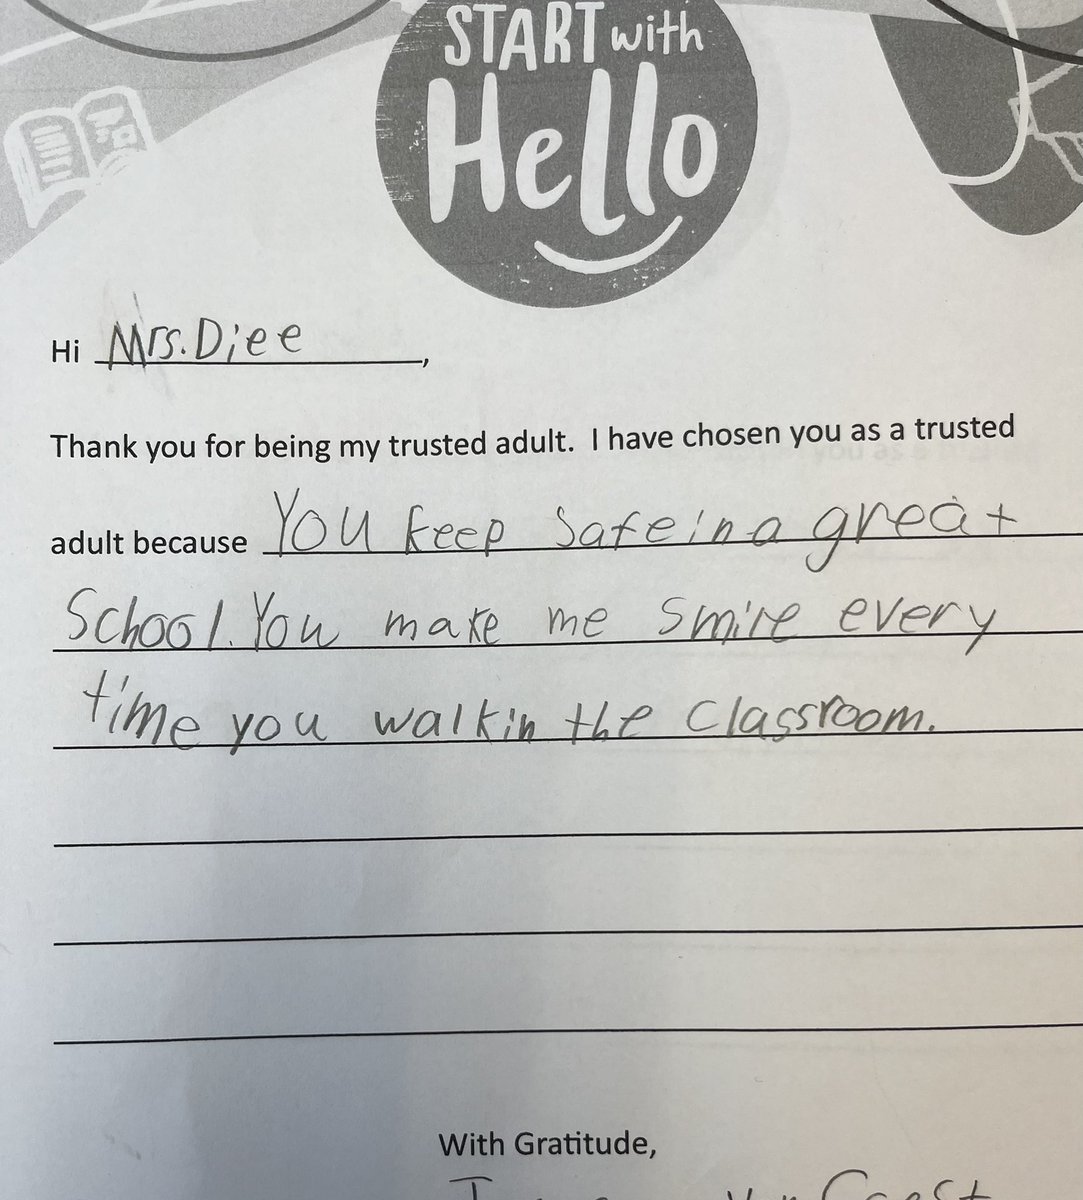 START with
Hello
Hi Mrs. Diee,
Thank you for being my trusted adult. I have chosen you as a trusted
adult because You keep safe in a great
School. You make me smile every
time you walk in the classroom.
With Gratitude,